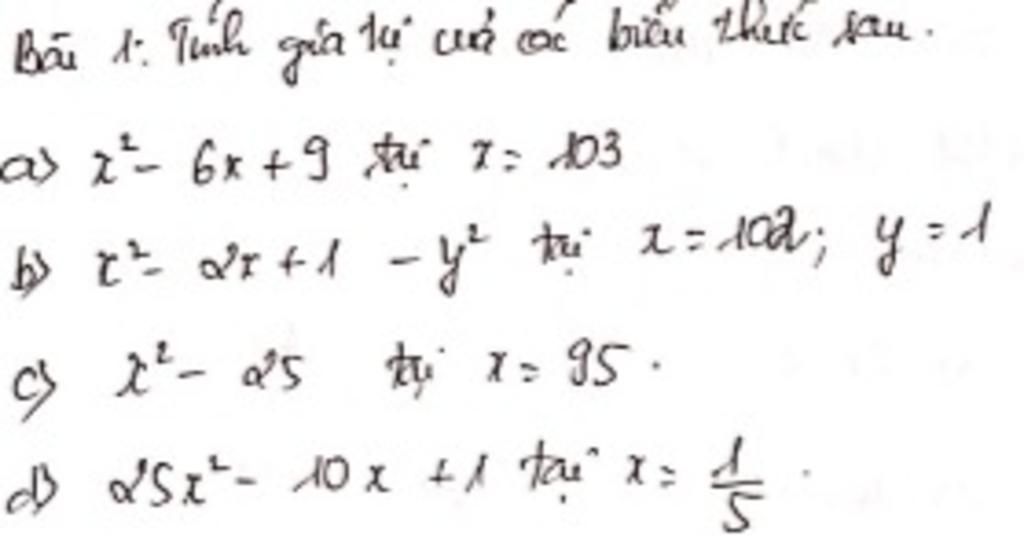 Bài 1: Tính giá trị của các biểu thức sau.
a) x² - 6x + 9 tại x = 103
b) x² - 2x + 1 - y² tại x = 102; y = 1
c) x² - 25 tại x = 95.
d) 25x² - 10x + 1 tại x = 1/5.